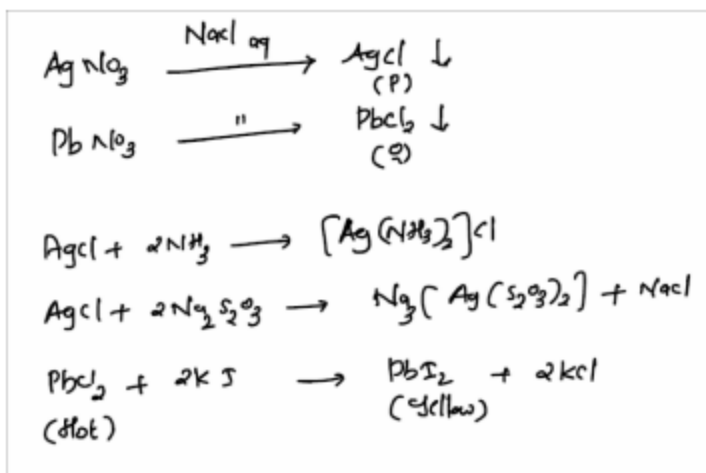 AgNO₃ —NaCl aq→ AgCl ↓
(P)
PbNO₃ —"→ PbCl₂ ↓
(Q)
AgCl + 2NH₃ → [Ag(NH₃)₂]Cl
AgCl + 2Na₂S₂O₃ → Na₃[Ag(S₂O₃)₂] + NaCl
PbCl₂ + 2KI → PbI₂ + 2KCl
(Hot) (Yellow)